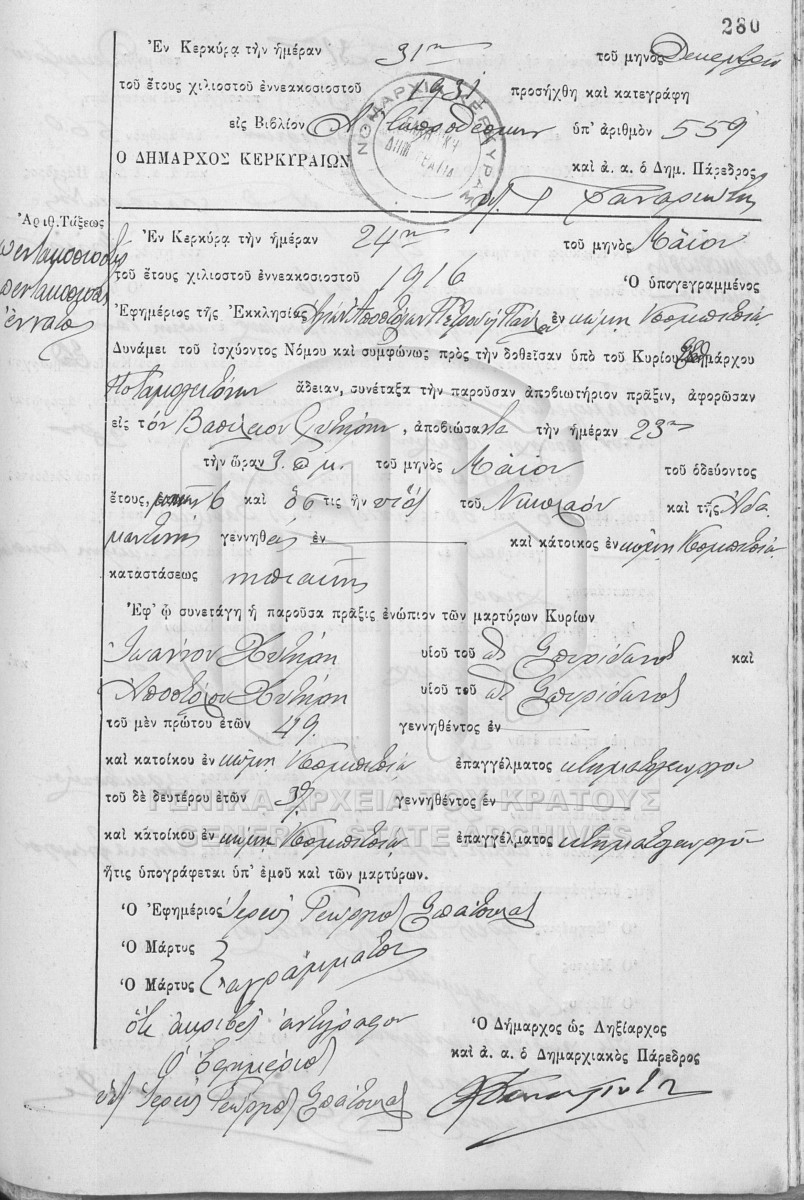 280
Ἐν Κερκύρᾳ τὴν ἡμέραν 31ην τοῦ μηνὸς Δεκεμβρίου
τοῦ ἔτους χιλιοστοῦ ἐννεακοσιοστοῦ 1931 προσήχθη καὶ κατεγράφη
εἰς Βιβλίον ὑπ' ἀριθμὸν 559
Ο ΔΗΜΑΡΧΟΣ ΚΕΡΚΥΡΑΙΩΝ
καὶ ἀ. α. ὁ Δημ. Πάρεδρος
ΝΟΜΑΡΧΙΑ ΚΕΡΚΥΡΑΣ
Ἀριθ. Τάξεως
πεντακόσια
ἔννατος
Ἐν Κερκύρᾳ τὴν ἡμέραν 24ην τοῦ μηνὸς Μαΐου
τοῦ ἔτους χιλιοστοῦ ἐννεακοσιοστοῦ 1916 Ὁ ὑπογεγραμμένος
Ἐφημέριος τῆς Ἐκκλησίας Ἁγίων Ἀποστόλων Πέτρου ἐν κώμῃ
Δυνάμει τοῦ ἰσχύοντος Νόμου καὶ συμφώνως πρὸς τὴν δοθεῖσαν ὑπὸ τοῦ Κυρίου Δημάρχου
Ποταμογειτόνων ἄδειαν, συνέταξα τὴν παροῦσαν ἀποβιωτήριον πρᾶξιν, ἀφορῶσαν
εἰς τόν Βασίλειον Χυτήρην, ἀποβιώσαντα τὴν ἡμέραν 23ην
τὴν ὥραν 3. π.μ. τοῦ μηνὸς Μαΐου τοῦ ὁδεύοντος
ἔτους, 6 καὶ ὅστις ἦν υἱὸς τοῦ Νικολάου καὶ τῆς Ἀδα
μαντίνης γεννηθείς ἐν καὶ κάτοικος ἐν κώμῃ
καταστάσεως νηπιακῆς
Ἐφ' ᾧ συνετάγη ἡ παροῦσα πρᾶξις ἐνώπιον τῶν μαρτύρων Κυρίων
Ἰωάννου Χυτήρη υἱοῦ τοῦ Σπυρίδωνος καὶ
Ἀποστόλου Χυτήρη υἱοῦ τοῦ Σπυρίδωνος
τοῦ μὲν πρώτου ἐτῶν 49. γεννηθέντος ἐν
καὶ κατοίκου ἐν κώμῃ ἐπαγγέλματος κτηματογεωργοῦ
τοῦ δὲ δευτέρου ἐτῶν 39. γεννηθέντος ἐν
ΓΕΝΙΚΑ ΑΡΧΕΙΑ ΤΟΥ ΚΡΑΤΟΥΣ
καὶ κατοίκου ἐν κώμῃ ἐπαγγέλματος κτηματογεωργοῦ
GENERAL STATE ARCHIVES
ἥτις ὑπογράφεται ὑπ' ἐμοῦ καὶ τῶν μαρτύρων.
Ὁ Ἐφημέριος Ἱερεὺς Γεώργιος
Ὁ Μάρτυς
ἀγράμματοι
Ὁ Μάρτυς
Ὅτι ἀκριβὲς ἀντίγραφον
Ὁ Ἐφημέριος
Ἱερεὺς Γεώργιος
Ὁ Δήμαρχος ὡς Ληξίαρχος
καὶ ἀ. α. ὁ Δημαρχιακὸς Πάρεδρος